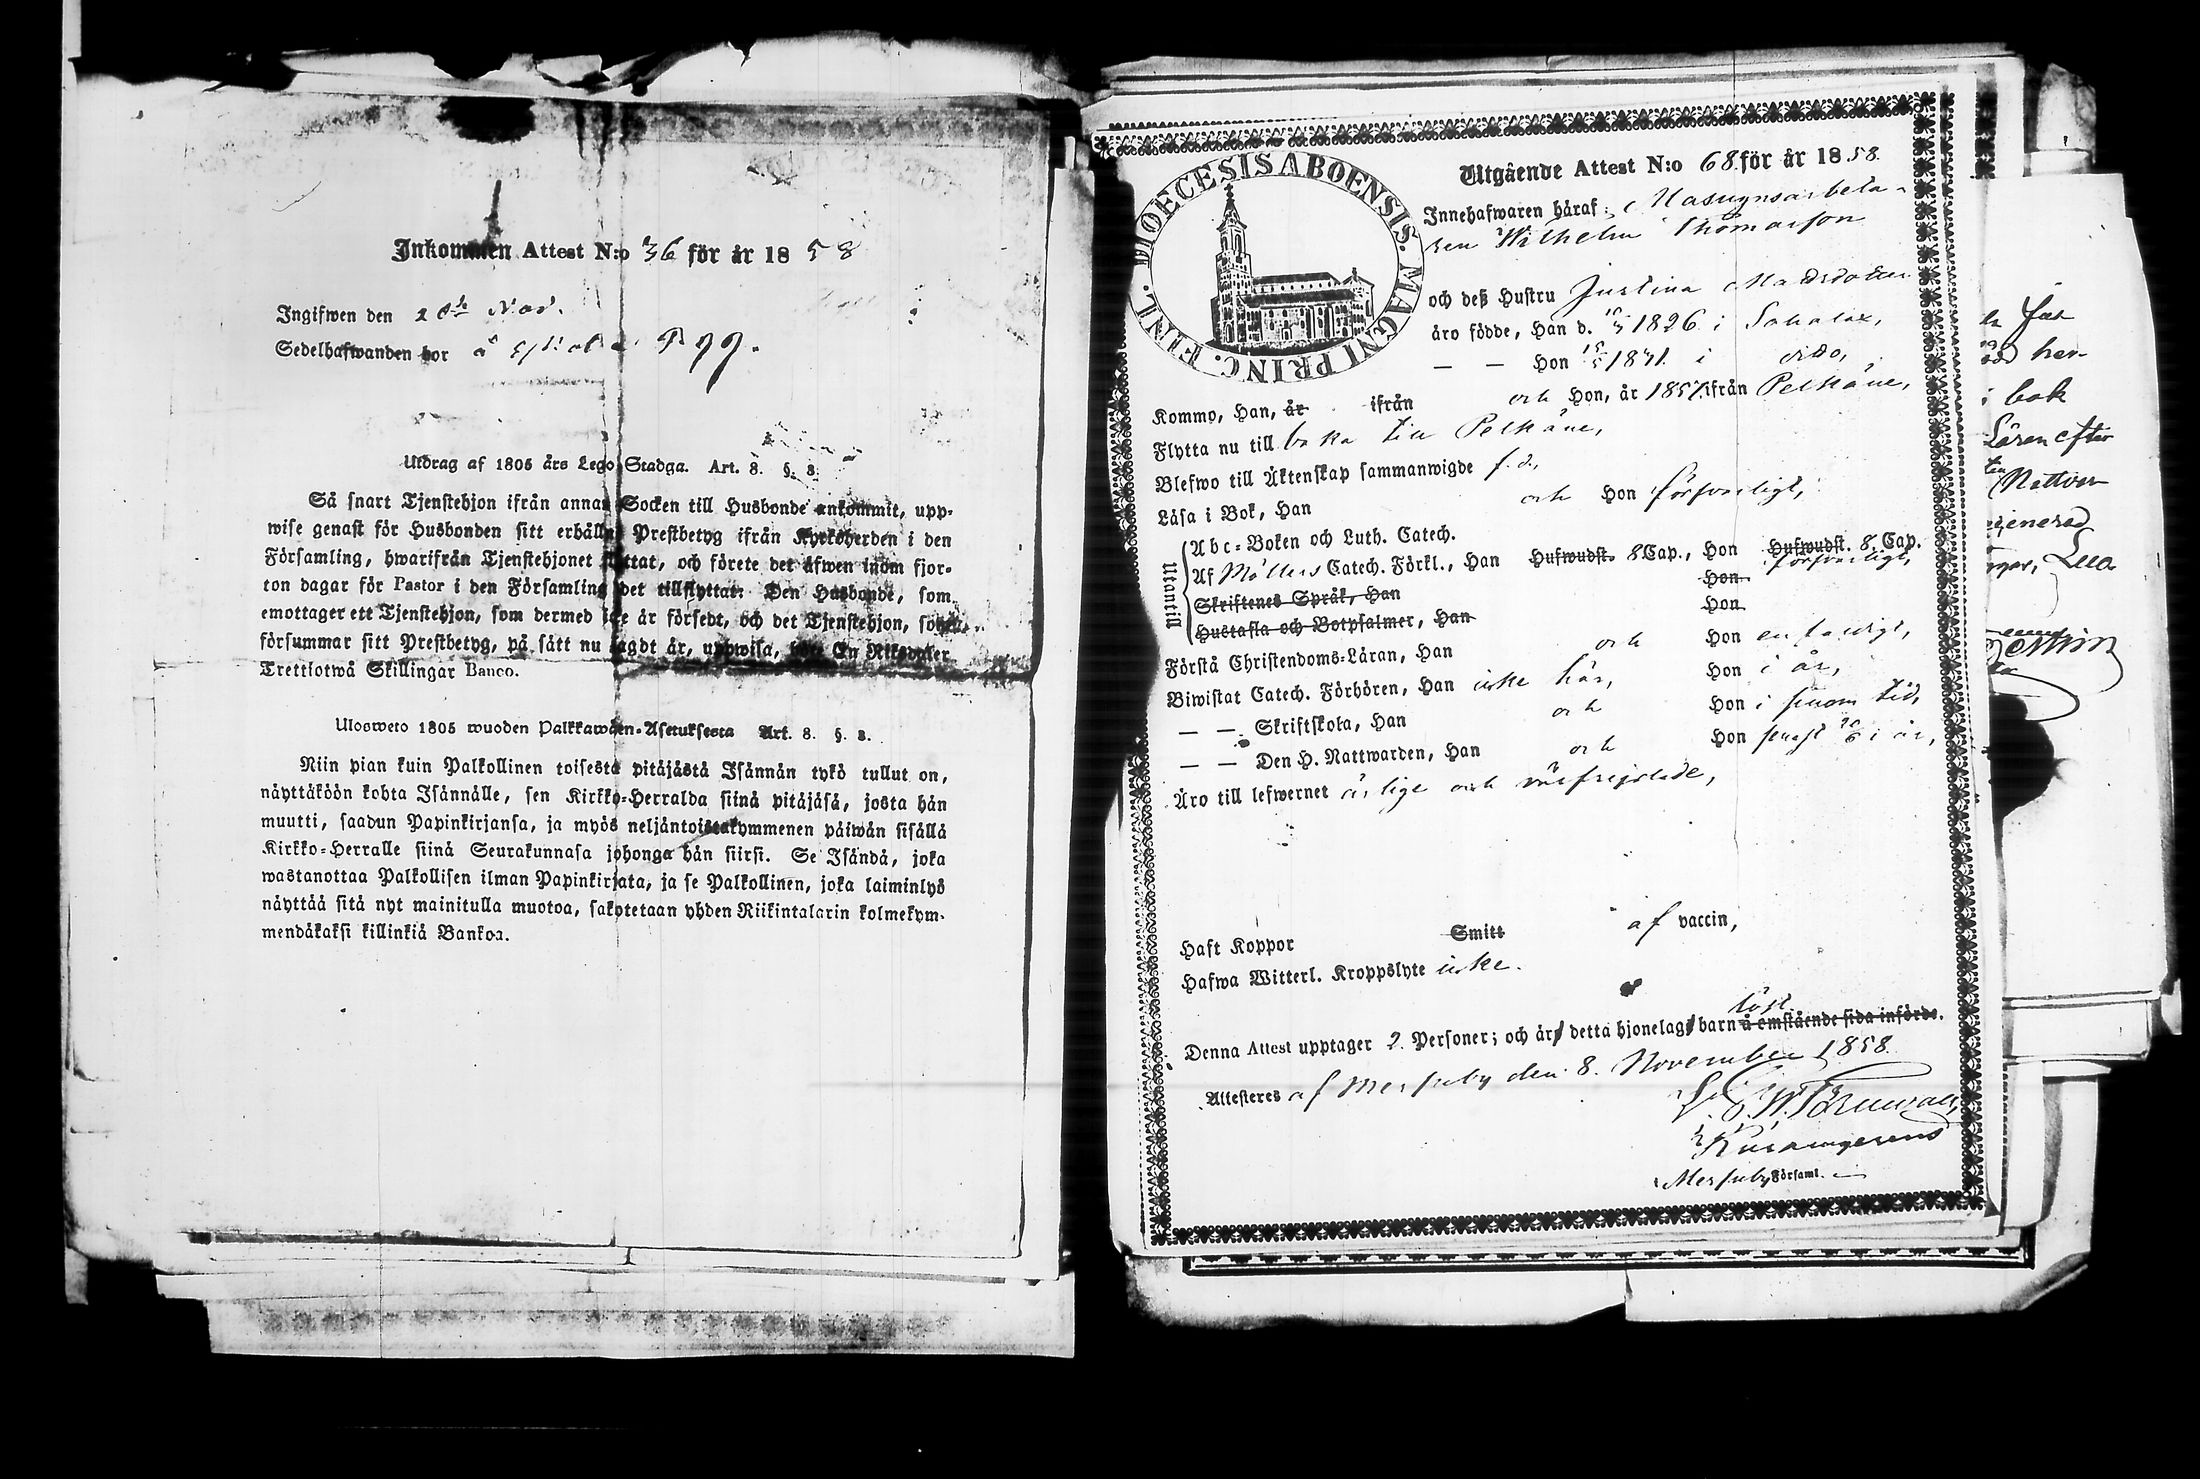 Inkommen Attest N:o 36 för år 1858
Ingifwen den 28de Nov.
Sedelhafwanden bor å
Utdrag af 1805 års Lego-Stadga. Art. 8. §. 8.
Så snart Tjenstehjon ifrån annan Socken till Husbonde ankommit, upp-
wise genast för Husbonden sitt erhållna Prestbetyg ifrån Kyrkoherden i den
Församling, hwarifrån Tjenstehjonet flyttat, och förete det äfwen inom fjor-
ton dagar för Pastor i den Församling det tillflyttat: Den Husbonde, som
emottager ett Tjenstehjon, som dermed icke är försedt, och det Tjenstehjon, som
försummar sitt Prestbetyg, på sätt nu sagdt är, uppwisa, böte En Riksdaler
Trettiotwå Skillingar Banco.
Ulosweto 1805 wuoden Palkkawäen-Asetuksesta Art. 8. §. 8.
Niin pian kuin Palkollinen toisesta pitäjästä Isännän tykö tullut on,
näyttäköön kohta Isännälle, sen Kirkko-Herralda siinä pitäjäsä, josta hän
muutti, saadun Papinkirjansa, ja myös neljäntoistakymmenen päiwän sisällä
Kirkko-Herralle siinä Seurakunnasa johonga hän siirsi. Se Isändä, joka
wastanottaa Palkollisen ilman Papinkirjata, ja se Palkollinen, joka laiminlyö
näyttää sitä nyt mainitulla muotoa, sakotetaan yhden Riikintalarin kolmekym-
mendäkaksi killinkiä Bankoa.
DIOECESIS ABOENSIS. MAGNI PRINC. FINL.
Utgående Attest N:o 68 för år 1858.
Innehafwaren häraf: Masugnsarbeta-
ren Wilhelm Thomasson
och deß Hustru Justina Matsdotter
äro födde, Han d. 1826 i Sahalax,
— — Hon 1831. i ditto,
Kommo, Han, år ifrån och Hon, år 1857. ifrån Pelkäne,
Flytta nu till baka till Pelkäne,
Blefwo till Äktenskap sammanwigde f. d.,
Läsa i Bok, Han och Hon försvarligt,
Utantill
Abc-Boken och Luth. Catech.
Af Möllers Catech. Förkl., Han Hufwudst. 8 Cap., Hon Hufwudst. 8 Cap.
försvarligt,
Skriftenes Språk, Han Hon
Hustafla och Botpsalmer, Han Hon
Förstå Christendoms-Läran, Han och Hon enfaldigt,
Biwistat Catech. Förhören, Han icke här, Hon i år,
— — Skriftskola, Han och Hon i sinom tid,
— — Den H. Nattwarden, Han och Hon senast i år,
Äro till lefwernet ärlige och välfrejdade,
Haft Koppor Smitt af vaccin,
Hafwa Witterl. Kroppslyte icke.
löst
Denna Attest upptager 2. Personer; och är detta hjonelag barn å omstående sida införde.
Attesteres af Messuby den 8. November 1858.
Kirkoherrens
Messuby Församl.
i bok
Läran efter
Nattvar